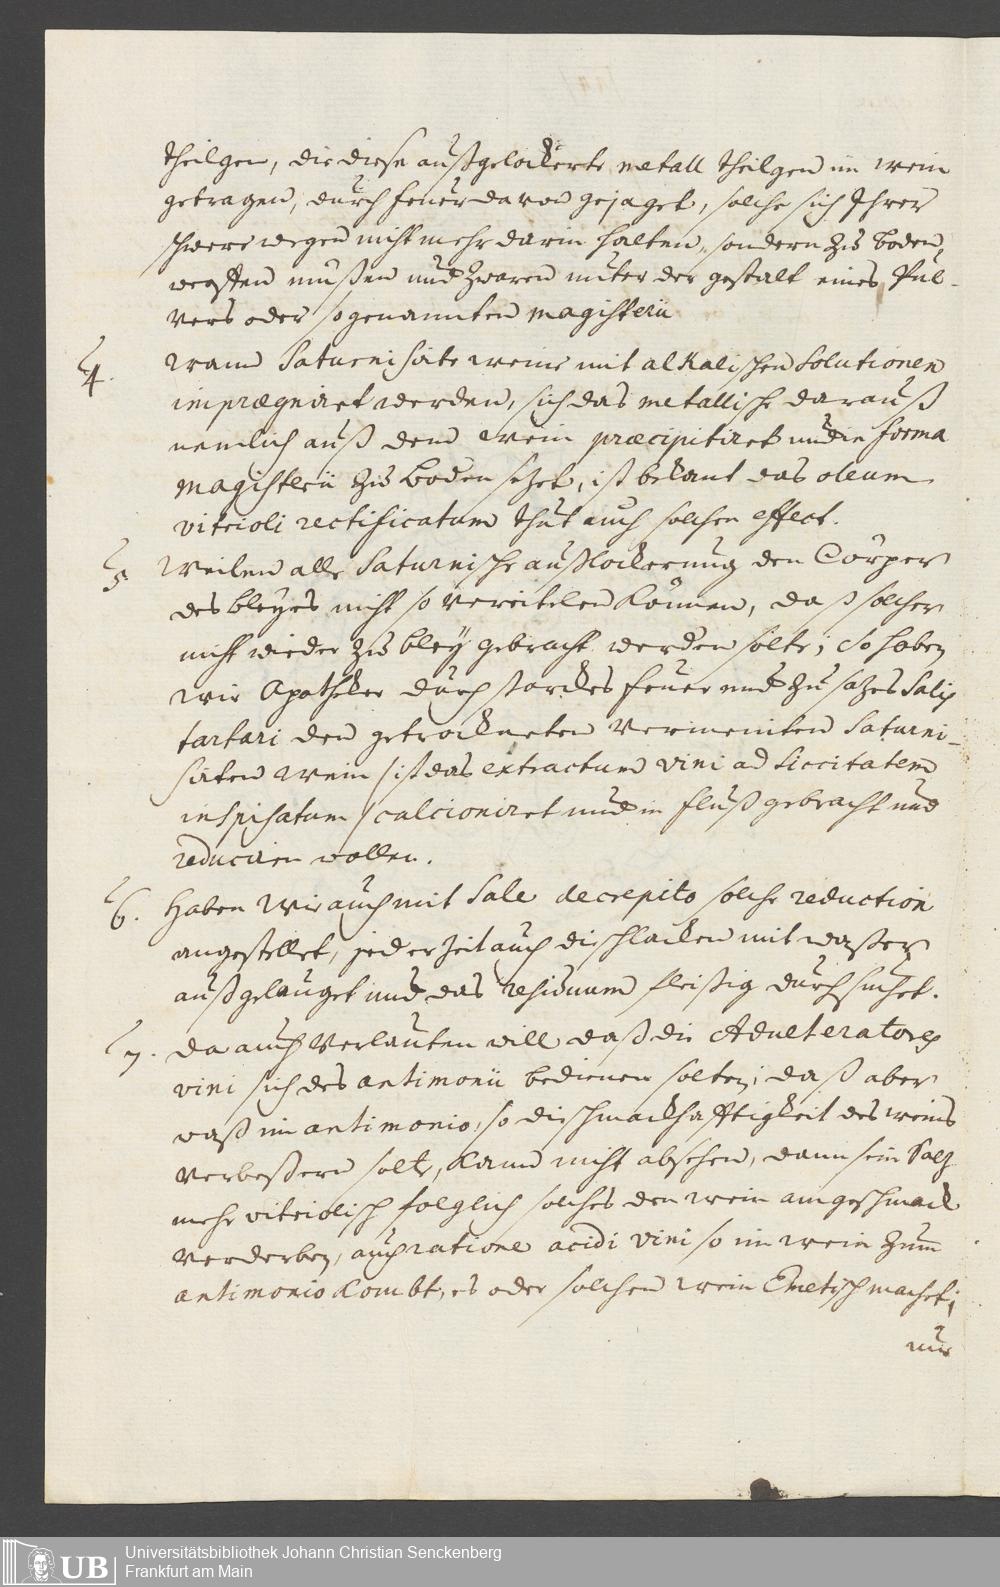 theilgen, die diese außgelockerte metall theilgen im wein
getragen, durch feuer davon gejaget, solche sich Ihrer
schwere wegen nicht mehr darin halten, sondern zu boden
werffen müßen und zwaren unter der gestalt eines Pul-
vers oder so genannten magisterii
4. wann Saturnisirte weine mit alkalischen Solutionen
imprægniret werden, sich das metallische darauß
nemlich auß dem wein præcipitiret und in forma
magisterii zu boden sezet, ist bekant das oleum
vitrioli rectificatum thut auch solchen effect.
5 Weilen alle Saturnische außlockerung den Cörper
des bleyes nicht so vereitelen können, daß solcher
nicht wieder zu bley gebracht werden solte; So haben
wir Apotheker durch starckes feuer und zu sazes Salis
tartari den getrockneten vermeinten Saturni-
sirten wein / ist das extractum vini ad siccitatem
inspisatum / calcioniret und in fluß gebracht und
reduciren wollen.
6. Haben wir auch mit Sale decrepito solche reduction
angestellet, jederzeit auch die schlacken mit waßer
außgelauget und das residuum fleißig durchsuchet.
7. Da auch verlauten will daß die Adulteratores
vini sich des antimonii bedienen solten; daß aber
waß im antimonio, so die schmackhafftigkeit des weins
verbeßern solte, kann nicht absehen, dann sein Salz
mehr vitriolisch folglich solches den wein am geschmack
verderben, auch ratione acidi vini so im wein zum
antimonio kombt, es oder solchen wein Emetisch machet;
nur
Universitätsbibliothek Johann Christian Senckenberg
Frankfurt am Main
UB